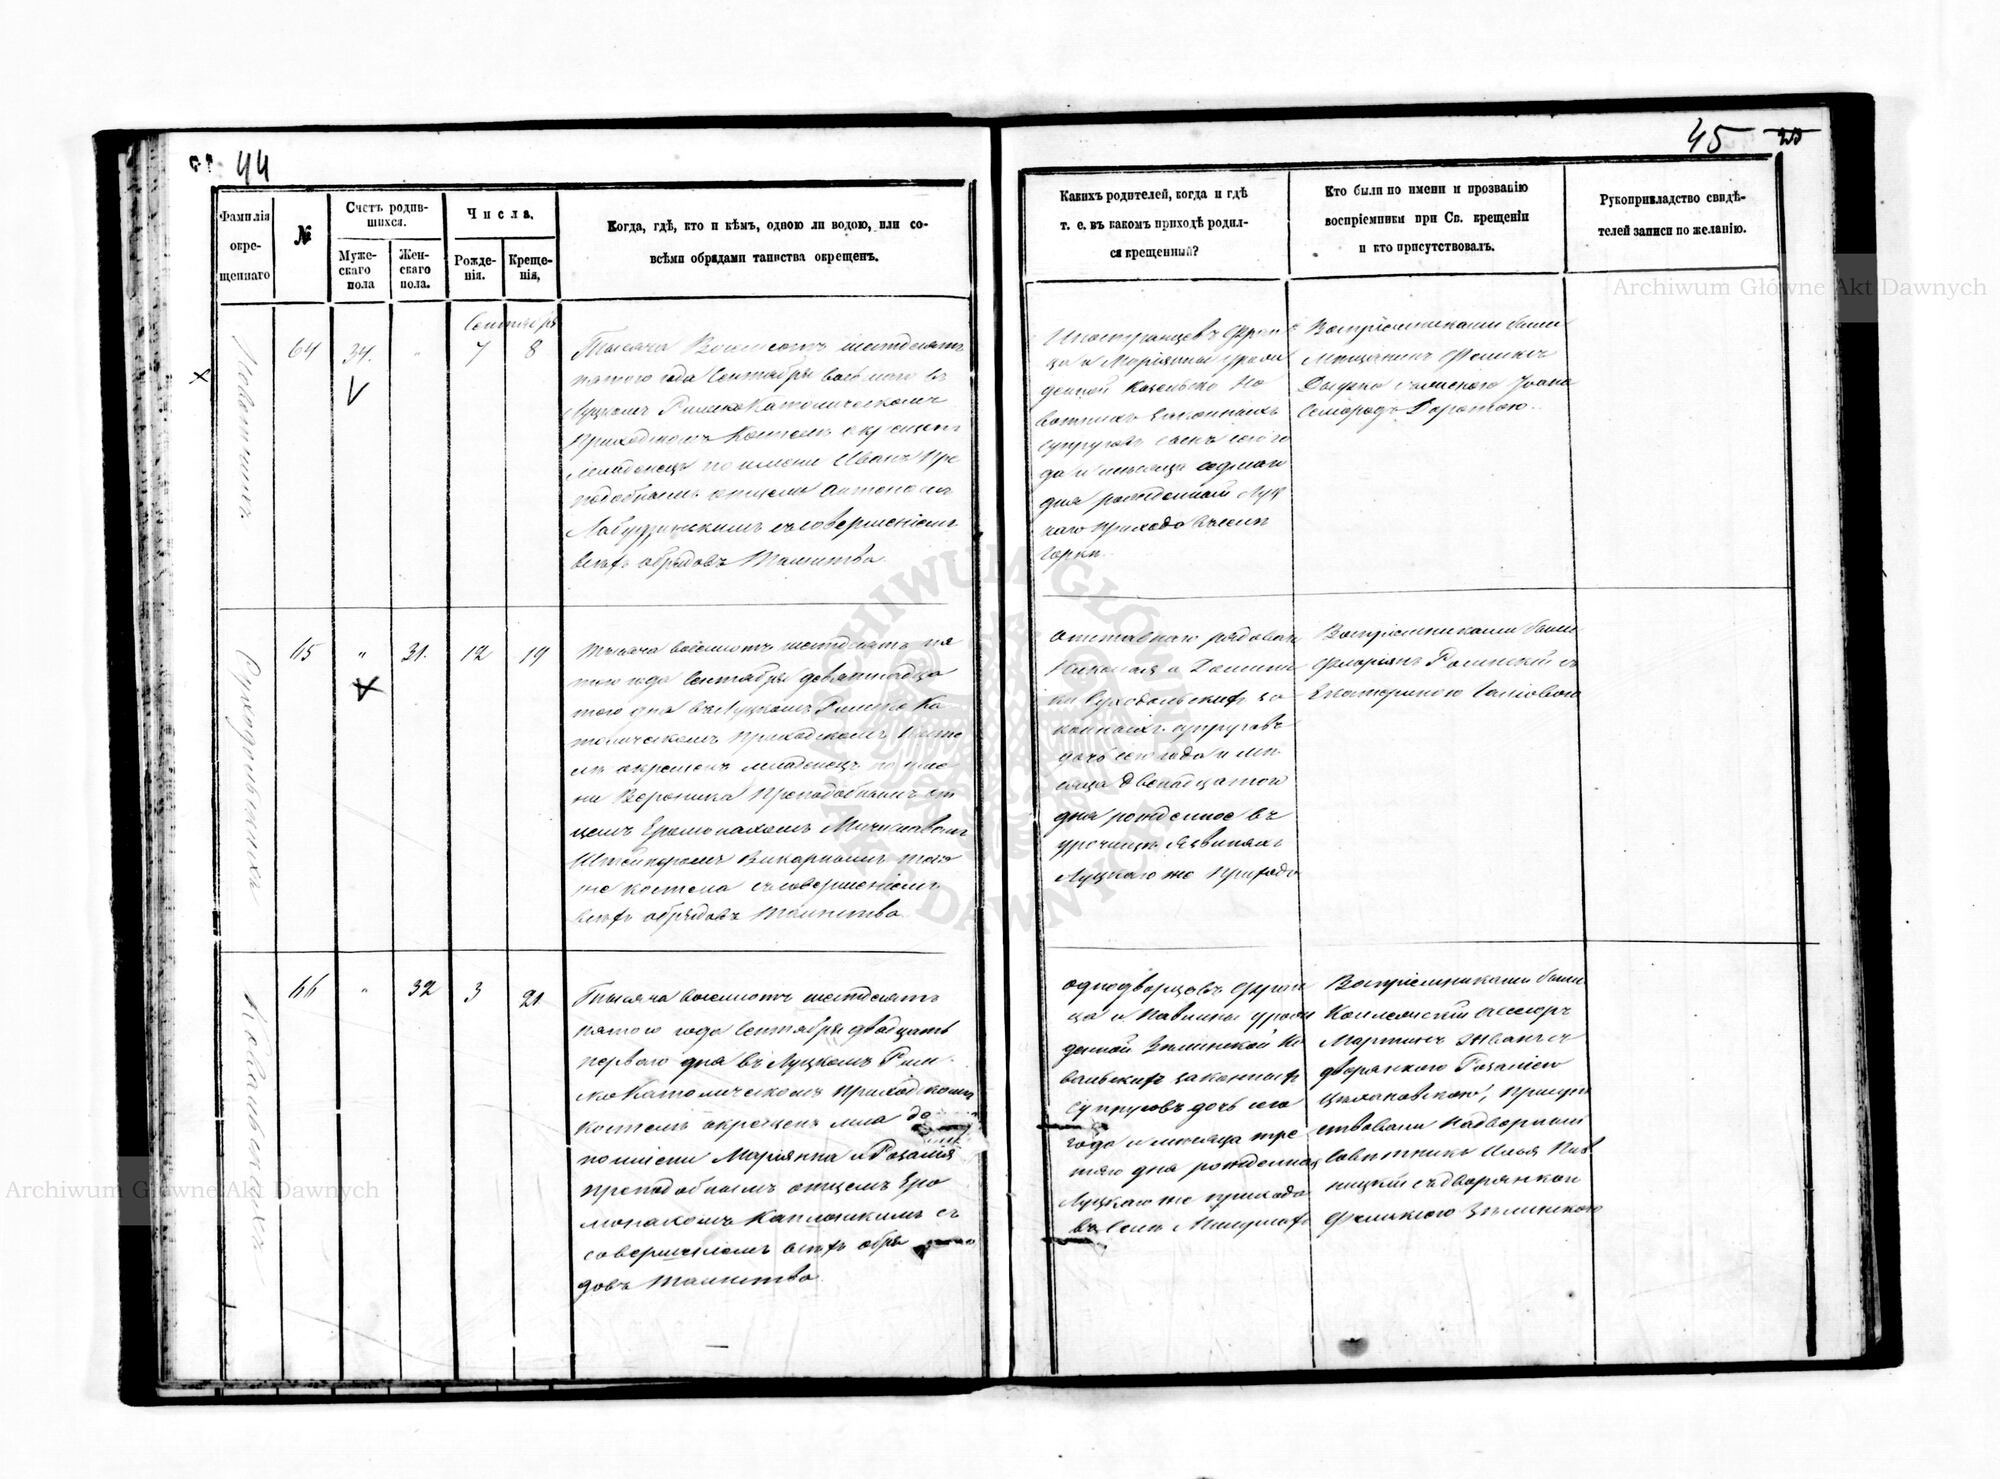 44
Фамилія окре-щеннаго
№
Счетъ родив-шихся.
Муже-скаго пола
Жен-скаго пола.
Числа,
Рожде-нія.
Креще-нія,
Когда, гдѣ, кто и кѣмъ, одною ли водою, или со-
всѣми обрядами таинства окрещенъ.
64
34.
"
Сентября
7
8
Тысяча Восемсотъ шестдесятъ
пятого года Сентября восьмого въ
Луцкомъ Римско Католическомъ
Приходскомъ Костелѣ окрещенъ
Младенецъ по имени Иванъ Пре
подобнымъ отцемъ Антономъ
съ совершеніемъ
всѣхъ обрядовъ Таинства.
Суходольскихъ
65
"
31.
12
19
Тысяча восемсотъ шестдесятъ пя
того года Сентября девятнадца
того дня въ Луцкомъ Римско Ка
толическомъ Приходскомъ Косте
лѣ окрещенъ младенецъ по име
ни Вероника Преподобнымъ от
цемъ Еромонахомъ
Викарнымъ того
же костела съ совершеніемъ
всѣхъ обрядовъ Таинства.
Ковальскихъ
66
"
32
3
21
Тысяча восемсотъ шестдесятъ
пятого года Сентября двадцать
перваго дня въ Луцкомъ Рим
ско Католическомъ Приходскомъ
костелѣ окрещенъ мла де
по имени Маріянна и Розалія
преподобнымъ отцемъ Еро
монахомъ съ
совершеніемъ всѣхъ обря
довъ Таинства.
45
Какихъ родителей, когда и гдѣ
т. е. въ какомъ приходѣ родил-
ся крещенный?
Кто были по имени и прозванію
воспріемники при Св. крещеніи
и кто присутствовалъ.
Рукоприкладство свидѣ-
телей записи по желанію.
Иностранцевъ Фран
ца и Маріянны урож
денной
законныхъ
супруговъ сынъ сего го
да и мѣсяца седмаго
дня рожденный Луц
каго прихода въ селѣ
Воспріемниками были
Мѣщанинъ Феликсъ
отставнаго рядоваго
Николая и Домини
ки Суходольскихъ за
конныхъ супруговъ
дочь сего года и мѣ
сяца Двенадцатого
дня рожденное въ
урочищѣ
Луцкаго же Прихода
Воспріемниками были
Флоріянъ съ
Екатериною
однодворцовъ Фран
ца и Павлины урож
денной Зелинской Ко
вальскихъ законныхъ
супруговъ дочь сего
года и мѣсяца тре
тяго дня рожденная
Луцкаго же прихода
въ Селѣ
Воспріемниками были
Коллежскій ассесоръ
Мартинъ съ
дворянкою Розаліею
присут
ствовали Надворный
Совѣтникъ Илья
съ дворянкою
Фелькею Зелинскою
Archiwum Główne Akt Dawnych
Archiwum Główne Akt Dawnych
ARCHIWUM GŁÓWNE AKT DAWNYCH